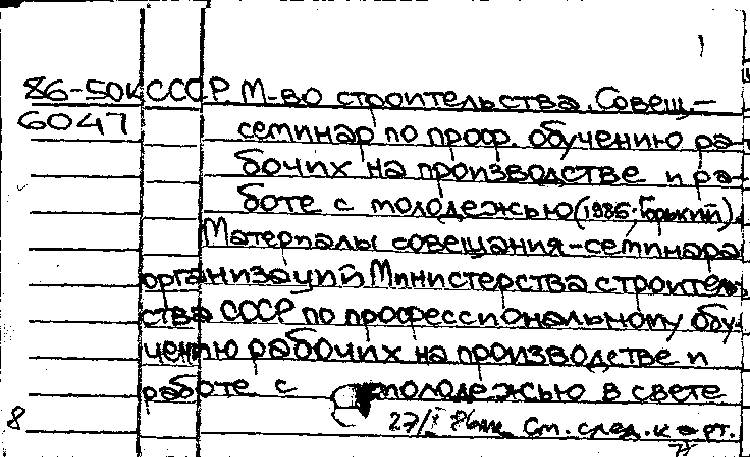 1
86-50к СССР. М-во строительства. Совещ.-
6047 семинар по проф. обучению ра-
бочих на производстве и ра-
боте с молодежью (1986; Горький).
Материалы совещания-семинара
организаций Министерства строитель-
ства СССР по профессиональному обу-
чению рабочих на производстве и
работе с молодежью в свете
8 27/I 86 См. след. карт.